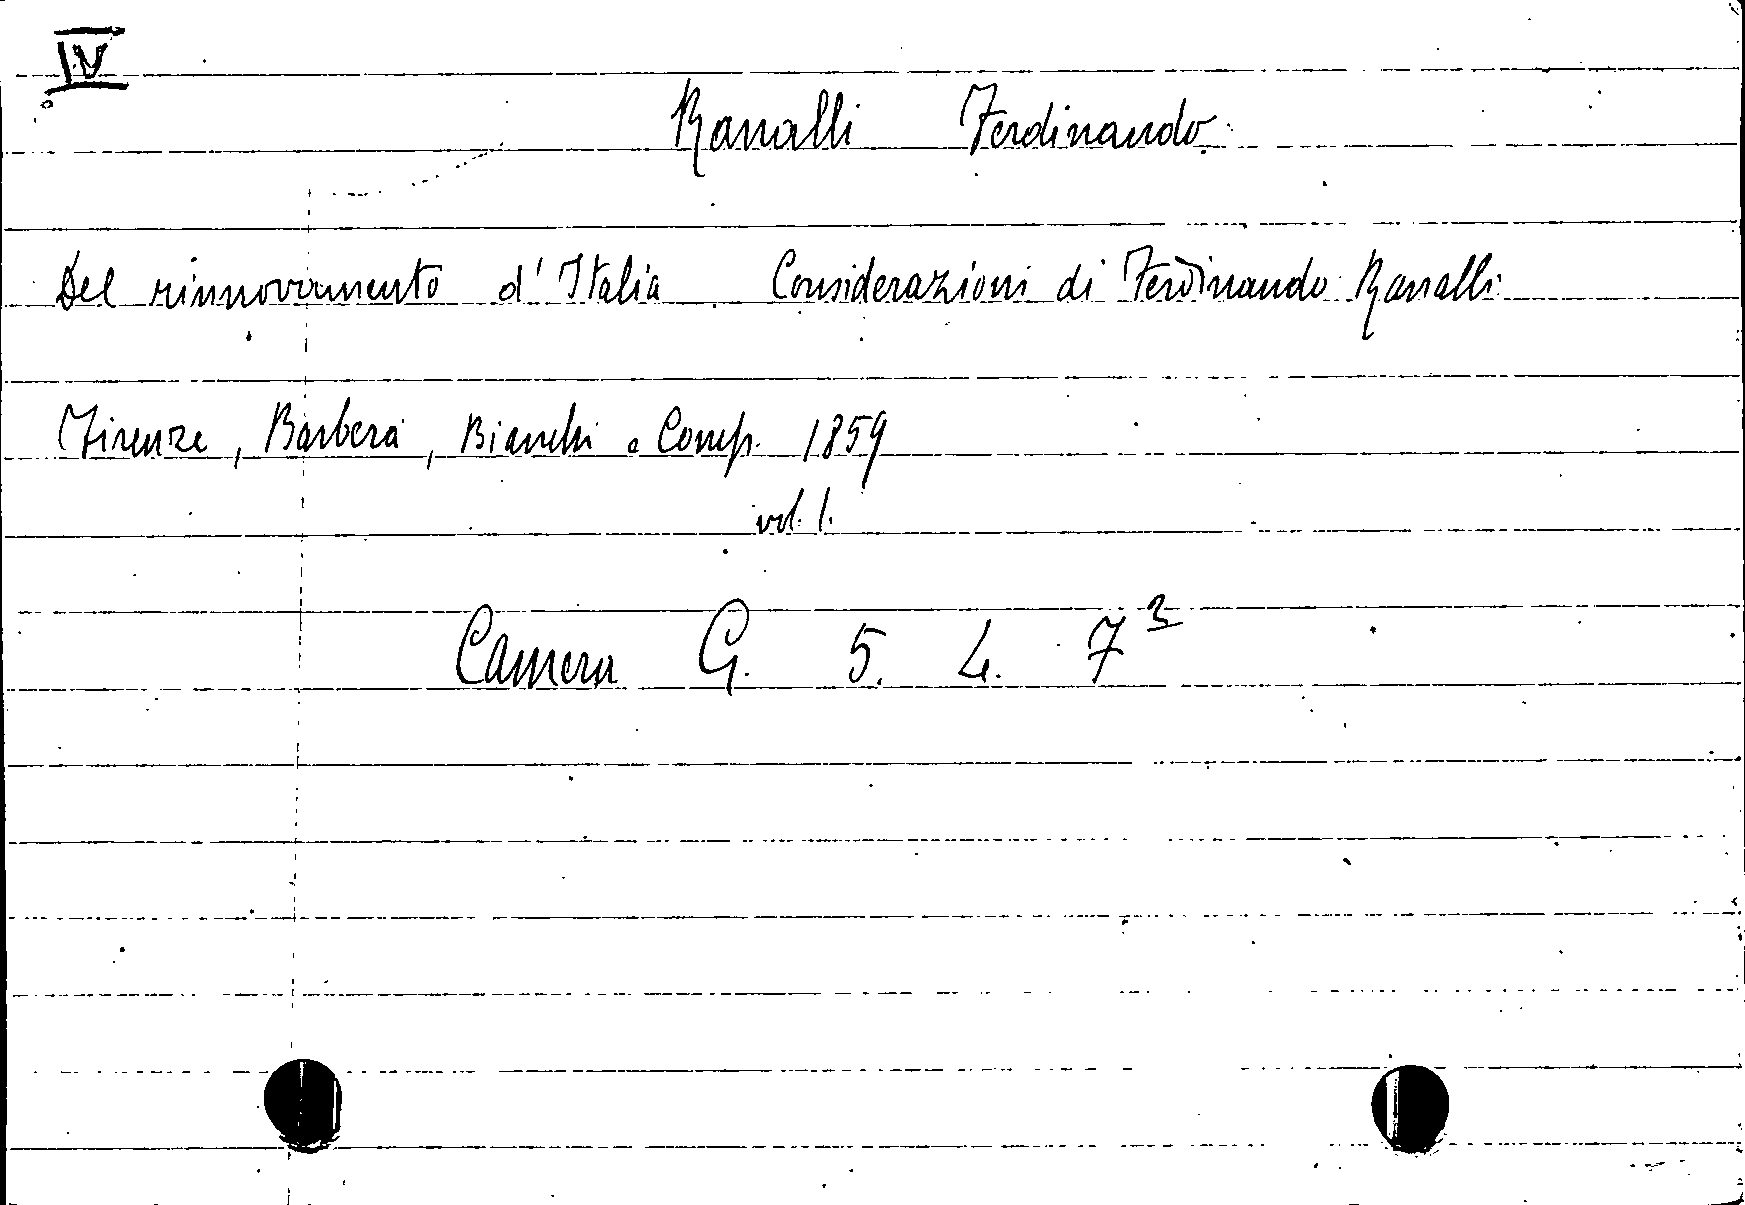 IV
Ranalli Ferdinando.
Del rinnovamento d'Italia Considerazioni di Ferdinando Ranalli
Firenze, Barbera, Bianchi e Comp. 1859
vol. 1.
Camera G. 5. 4. 7³